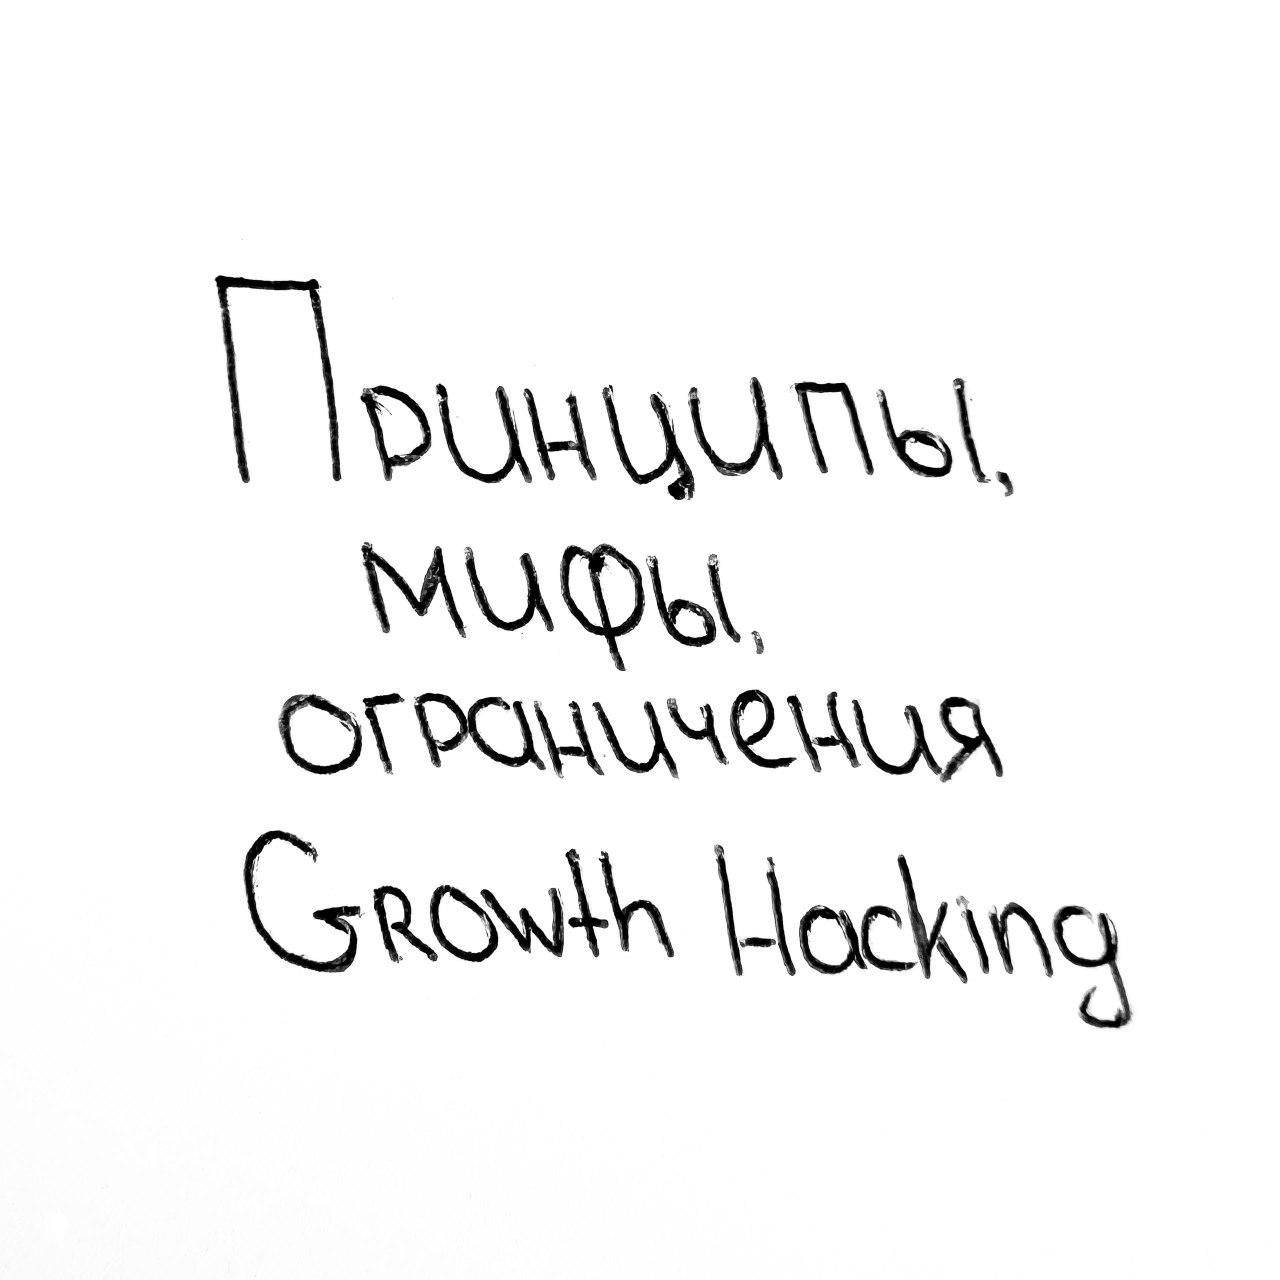 Принципы,
мифы,
ограничения
Growth Hacking